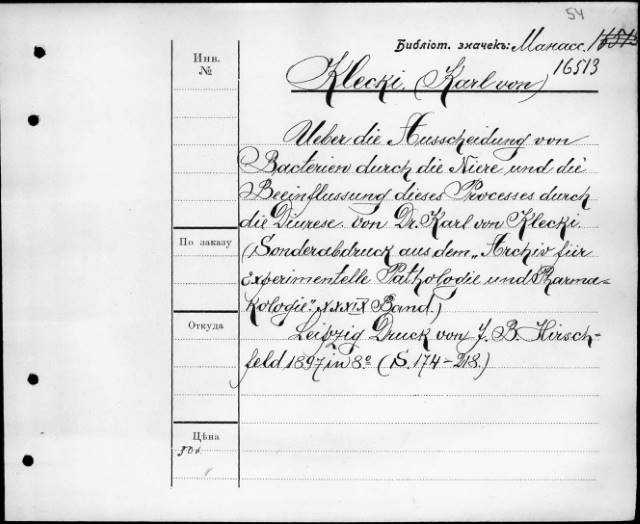 54
Библіот. значекъ: Манасс. 16513
16513
Инв.
№
Klecki. (Karl von)
Ueber die Ausscheidung von
Bacterien durch die Niere und die
Beeinflussung dieses Processes durch
die Diurese. von Dr. Karl von Klecki.
(Sonderabdruck aus dem „Archiv für
experimentelle Pathologie und Pharma-
kologie". XXXIX Band.)
Leipzig Druck von J. B. Hirsch-
feld 1897 in 8º (S. 174-218.)
По заказу
Откуда
Цѣна